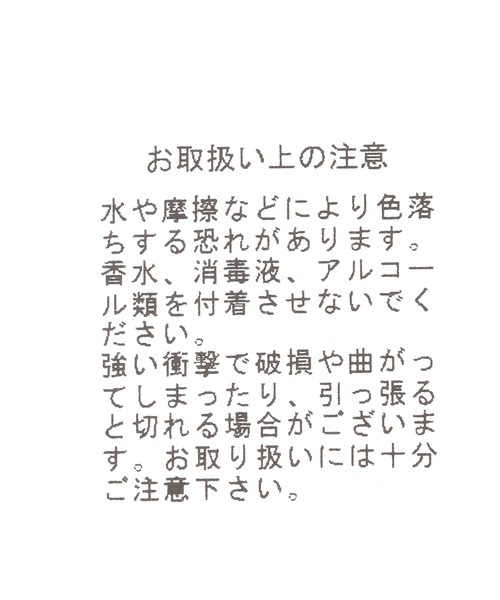 お取扱い上の注意
水や摩擦などにより色落
ちする恐れがあります。
香水、消毒液、アルコー
ル類を付着させないでく
ださい。
強い衝撃で破損や曲がっ
てしまったり、引っ張る
と切れる場合がございま
す。お取り扱いには十分
ご注意下さい。